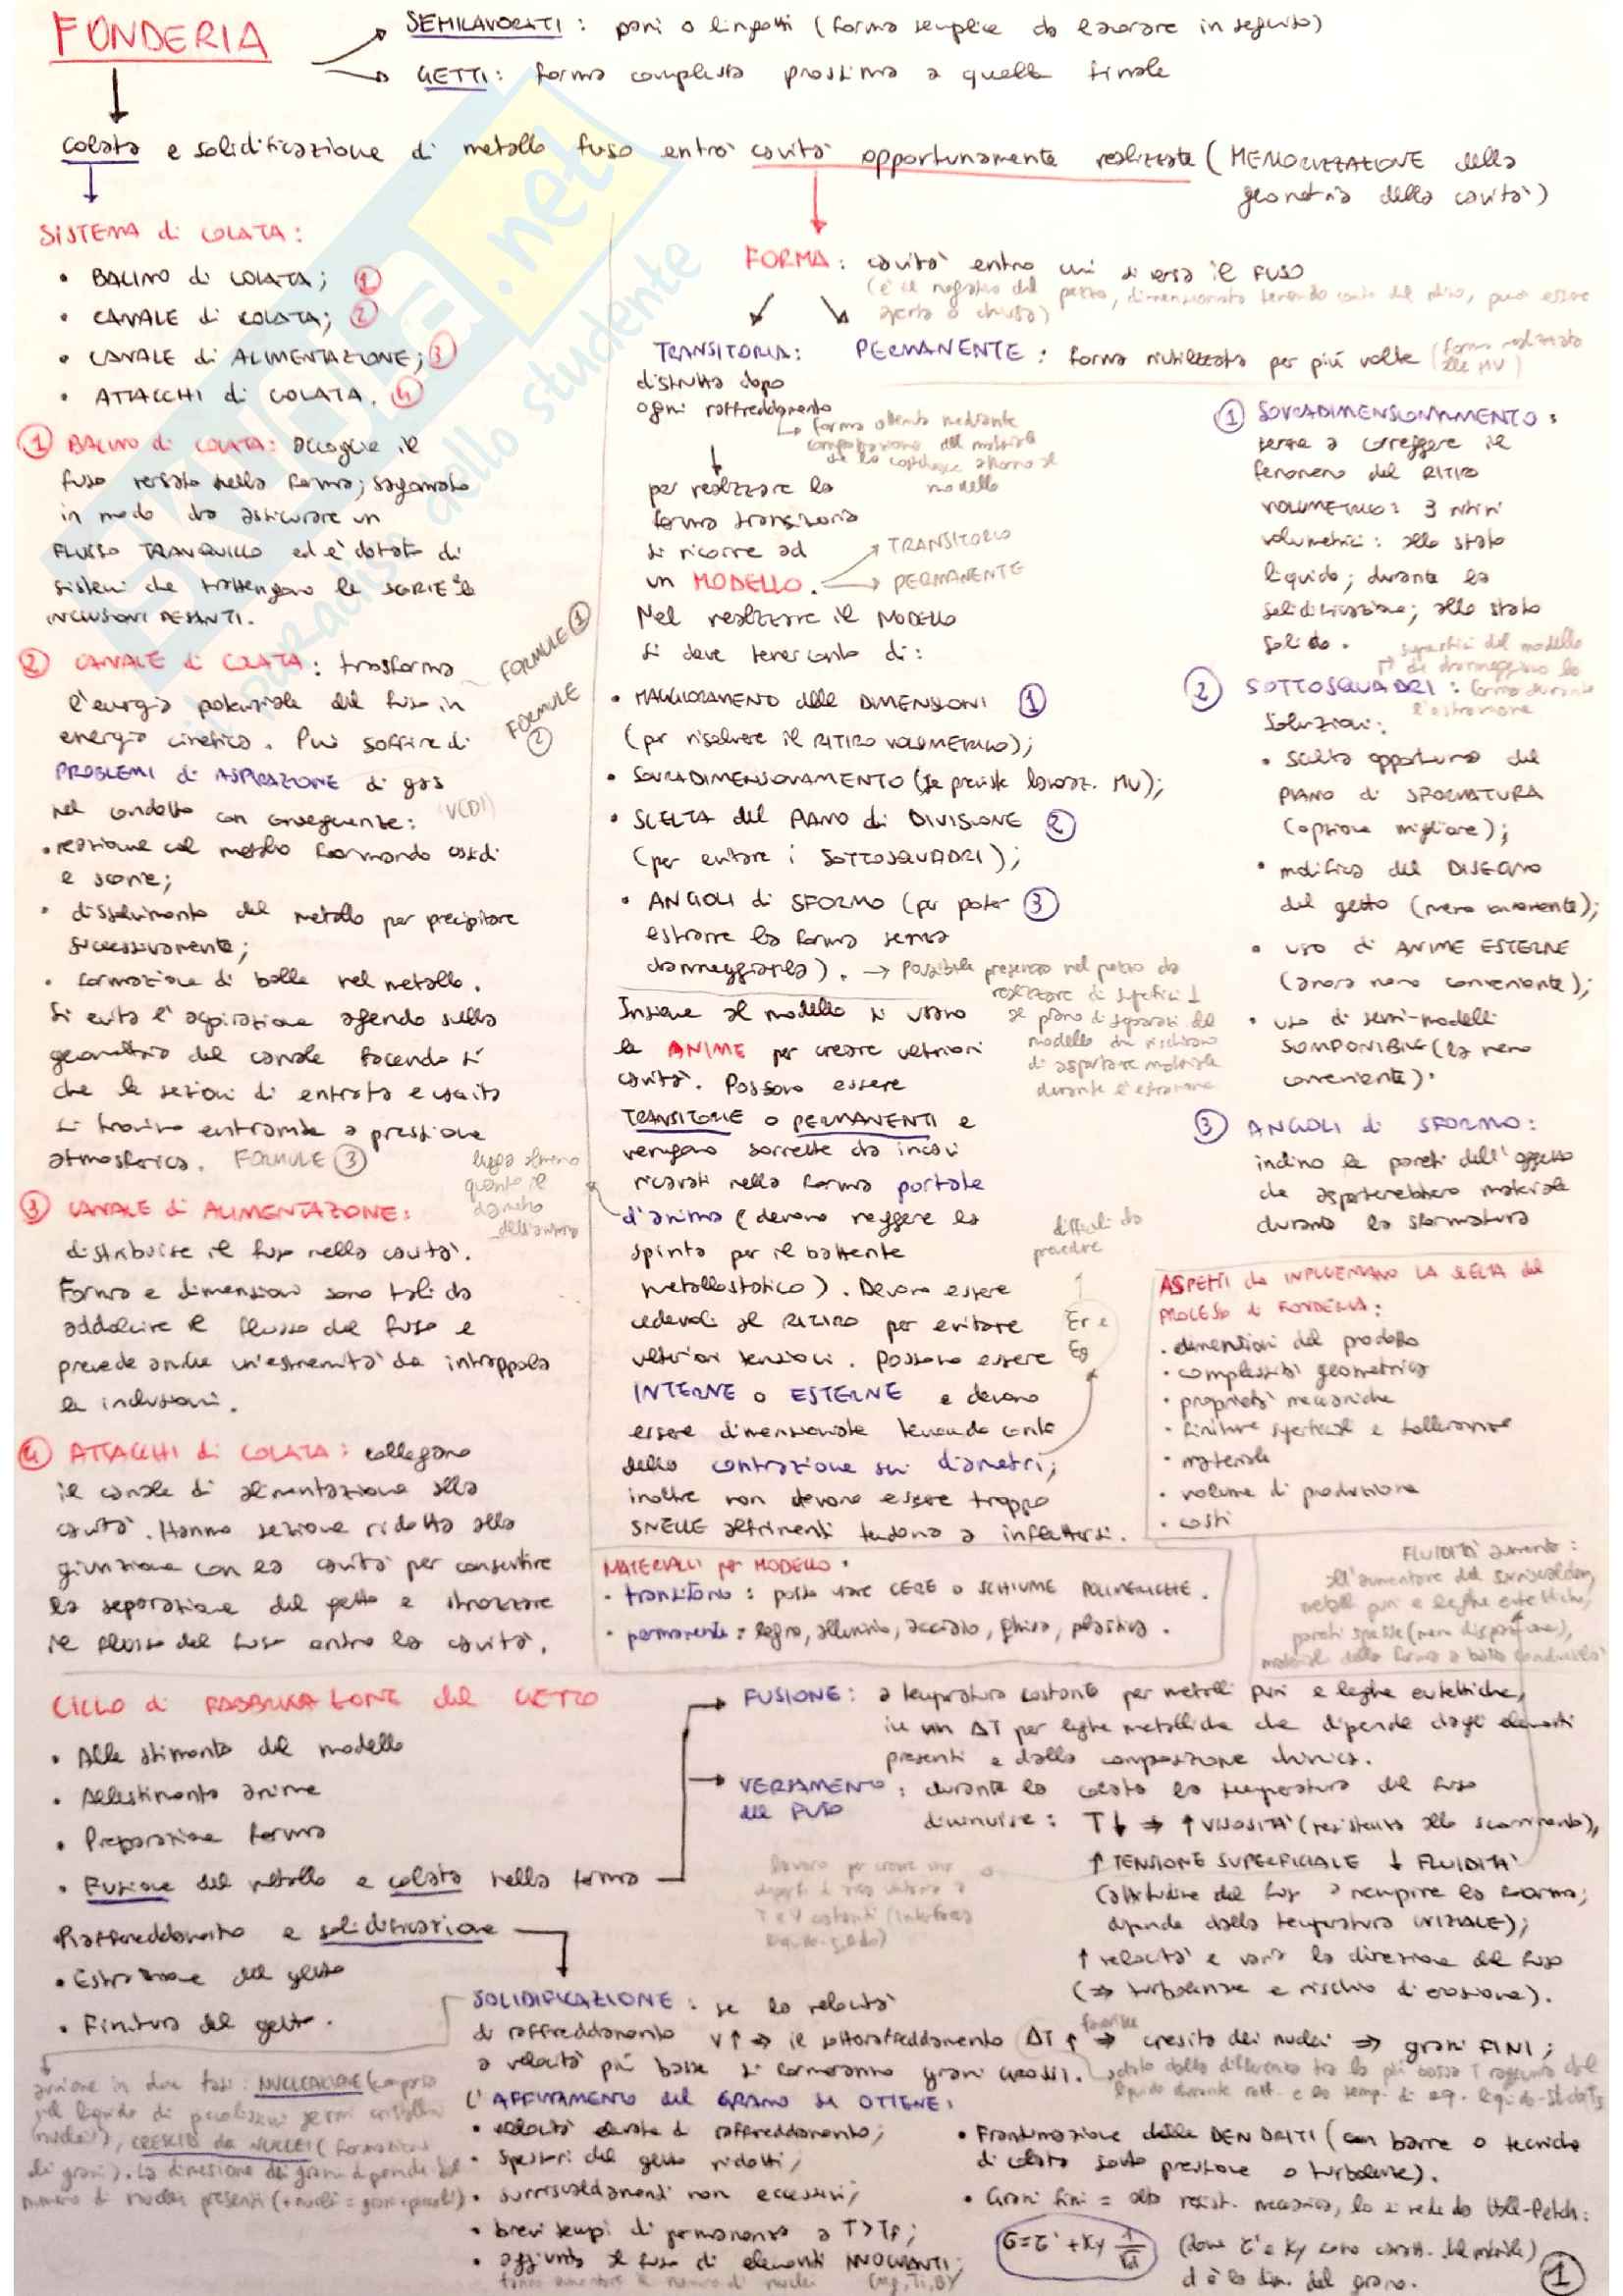 FONDERIA
SEMILAVORATI : pani o lingotti (forma semplice da lavorare in seguito)
GETTI : forma complessa prossima a quella finale
colata e solidificazione di metallo fuso entro cavità opportunamente realizzate (MEMORIZZAZIONE della
geometria della cavità)
SISTEMA di COLATA :
• BACINO di COLATA ; 1
• CANALE di COLATA; 2
• CANALE di ALIMENTAZIONE; 3
• ATTACCHI di COLATA. 4
1 BACINO di COLATA: accoglie il
fuso versato nella forma; sagomato
in modo da assicurare un
FLUSSO TRANQUILLO ed è dotato di
sistemi che trattengono le SCORIE e le
INCLUSIONI PESANTI.
2 CANALE di COLATA : trasforma
l'energia potenziale del fuso in
energia cinetica. Può soffrire di
PROBLEMI di ASPIRAZIONE di gas
nel condotto con conseguente:
• reazione col metallo formando ossidi
e scorie;
• dissolvimento del metallo per precipitare
successivamente;
• formazione di bolle nel metallo.
Si evita l'aspirazione agendo sulla
geometria del canale facendo sì
che le sezioni di entrata e uscita
si trovino entrambe a pressione
atmosferica. FORMULE 3
FORMULE 1
FORMULE 2
3 CANALE di ALIMENTAZIONE:
distribuisce il fuso nella cavità.
Forma e dimensioni sono tali da
addolcire il flusso del fuso e
prevede anche un'estremità da intrappola
le inclusioni.
4 ATTACCHI di COLATA : collegano
il canale di alimentazione alla
cavità. Hanno sezione ridotta alla
giunzione con la cavità per consentire
la separazione del getto e strozzare
il flusso del fuso entro la cavità.
FORMA : cavità entro cui si versa il FUSO
(è il negativo del pezzo, dimensionato tenendo conto del ritiro, può essere
aperta o chiusa)
TRANSITORIA:
distrutta dopo
ogni raffreddamento
forma ottenuta mediante
compattazione del materiale
che la costituisce attorno al
modello
PERMANENTE : forma riutilizzata per più volte (forma realizzata
alle MU)
per realizzare la
forma transitoria
si ricorre ad
un MODELLO.
TRANSITORIO
PERMANENTE
Nel realizzare il MODELLO
si deve tener conto di :
• MAGGIORAMENTO delle DIMENSIONI 1
(per risolvere il RITIRO VOLUMETRICO);
• SOVRADIMENSIONAMENTO (se previste lavoraz. MU);
• SCELTA del PIANO di DIVISIONE 2
(per evitare i SOTTOSQUADRI);
• ANGOLI di SFORMO (per poter 3
estrarre la forma senza
danneggiarla). → Possibile presenza nel pezzo da
realizzare di superfici ⊥
al piano di separaz. del
modello che rischiano
di asportare materiale
durante l'estrazione
Insieme al modello si usano
le ANIME per creare ulteriori
cavità. Possono essere
TRANSITORIE o PERMANENTI e
vengono sorrette da incavi
ricavati nella forma portate
d'anima (devono reggere la
spinta per il battente
metallostatico). Devono essere
cedevoli al RITIRO per evitare
ulteriori tensioni. Possono essere
INTERNE o ESTERNE e devono
essere dimensionate tenendo conto
della contrazione sui diametri;
inoltre non devono essere troppo
SNELLE altrimenti tendono a inflettersi.
lunga almeno
quanto il
diametro
dell'anima
difficili da
prevedere
Er e
Eg
MATERIALI per MODELLO :
• transitorio : posso usare CERE o SCHIUME POLIMERICHE.
• permanente : legno, alluminio, acciaio, ghisa, plastica.
1 SOVRADIMENSIONAMENTO :
serve a correggere il
fenomeno del RITIRO
VOLUMETRICO: 3 ritiri
volumetrici : allo stato
liquido; durante la
solidificazione; allo stato
solido.
2 SOTTOSQUADRI : superfici del modello
che danneggiano la
forma durante
l'estrazione
Soluzioni:
• scelta opportuna del
PIANO di SFORMATURA
(opzione migliore);
• modifica del DISEGNO
del getto (meno conveniente);
• uso di ANIME ESTERNE
(ancora meno conveniente);
• uso di semi-modelli
SCOMPONIBILI (la meno
conveniente).
3 ANGOLI di SFORMO :
inclino le pareti dell'oggetto
che asporterebbero materiale
durante la sformatura
ASPETTI che INFLUENZANO LA SCELTA del
PROCESSO di FONDERIA :
• dimensioni del prodotto
• complessità geometrica
• proprietà meccaniche
• finiture superficiali e tolleranze
• materiale
• volume di produzione
• costi
FLUIDITÀ aumenta :
all'aumentare del surriscaldam,
metalli puri e leghe eutettiche,
pareti spesse (meno dispersione),
materiale della forma a bassa conducibilità
CICLO di FABBRICAZIONE del GETTO
• Allestimento del modello
• Allestimento anime
• Preparazione forma
• Fusione del metallo e colata nella forma
• Raffreddamento e solidificazione
• Estrazione del getto
• Finitura del getto.
FUSIONE : a temperatura costante per metalli puri e leghe eutettiche,
in un ΔT per leghe metalliche che dipende dagli elementi
presenti e dalla composizione chimica.
VERSAMENTO del FUSO : durante la colata la temperatura del fuso
diminuisce : T↓ ⇒ ↑ VISCOSITÀ (resistenza allo scorrimento),
↑ TENSIONE SUPERFICIALE ↓ FLUIDITÀ
(attitudine del fuso a riempire la forma;
dipende dalla temperatura INIZIALE);
↑ velocità e varia la direzione del fuso
(⇒ turbolenze e rischio di erosione).
lavoro per creare una
T e V costanti (interfaccia
liquido-solido)
SOLIDIFICAZIONE : se la velocità
di raffreddamento V↑ ⇒ il sottoraffreddamento ΔT ↑ ⇒ favorisce crescita dei nuclei ⇒ grani FINI ;
a velocità più basse si formeranno grani GROSSI.
dato dalla differenza tra la più bassa T raggiunta dal
liquido durante raff. e la temp. di eq. liquido-solido Ts
L'AFFINAMENTO del GRANO si OTTIENE :
• velocità elevate di raffreddamento;
• spessori del getto ridotti;
• surriscaldamenti non eccessivi;
• brevi tempi di permanenza a T>Tf;
• aggiunta al fuso di elementi INOCULANTI;
fanno aumentare il numero di nuclei (Mg, Ti, B)
• Frantumazione delle DENDRITI (con barre o tecniche
di colata sotto pressione o turbolenze).
• Grani fini = alta resist. meccanica, lo si vede da Hall-Petch:
σ = σ' + Ky 1/√d (dove σ' e Ky sono caratt. del materiale)
d è la dim. del grano.
avviene in due fasi : NUCLEAZIONE (comparsa
nel liquido di piccolissimi germi cristallini
(nuclei)), CRESCITA dei NUCLEI (formazione
dei grani). La dimensione dei grani dipende dal
numero di nuclei presenti (+ nuclei = grani + piccoli)
1
.net
dello studente